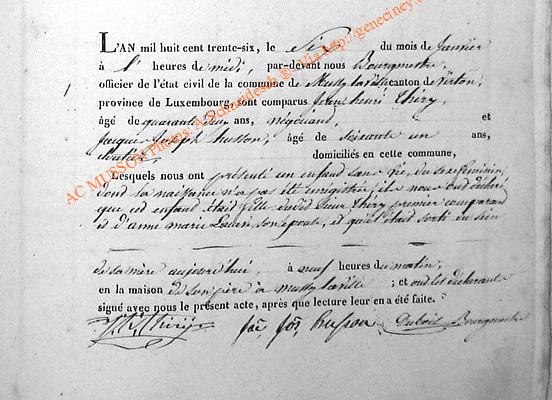 L'AN mil huit cent trente-six, le Six du mois de Janvier
à heures de midi, par-devant nous Bourgmestre,
officier de l'état civil de la commune de Mussy la ville canton de Virton,
province de Luxembourg, sont comparus Jean henri Thiry,
âgé de quarante deux ans, négociant, et
Jacque Joseph husson, âgé de soixante un ans,
cloutier, domiciliés en cette commune,
Lesquels nous ont présenté un enfant sans vie, du sexe féminin,
dont la naissance n'a pas été enregistrée, ils nous ont déclaré
que cet enfant était fille dudit Sieur Thiry premier comparant
et d'anne marie son épouse, et qu'il était sorti du sein
de sa mère aujourd'hui, à neuf heures du matin,
en la maison de son père à Mussy la ville ; et ont les déclarants
signé avec nous le présent acte, après que lecture leur en a été faite.
J. h. Thiry Jac Jos husson Dubois Bourgmestre
AC MUSSON Photos: A Schneidesch ® Via http://geneciney.